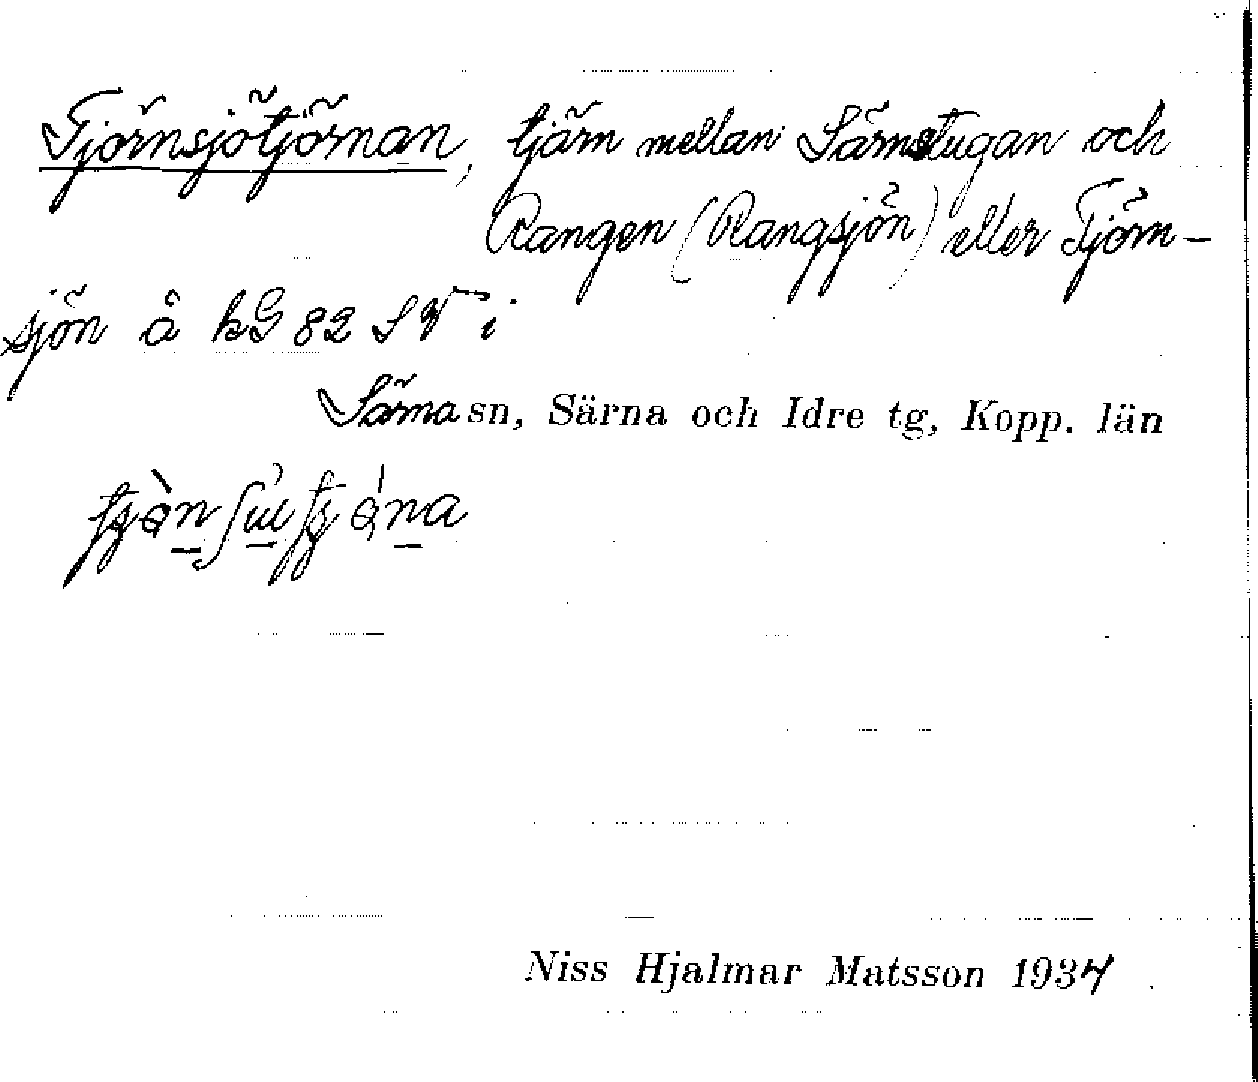 Tjörnsjötjörnan, tjärn mellan Särnstugan och
Rangen (Rangsjön) eller Tjörn-
sjön å kG 82 SV i
Särna sn, Särna och Idre tg, Kopp. län
Niss Hjalmar Matsson 1934